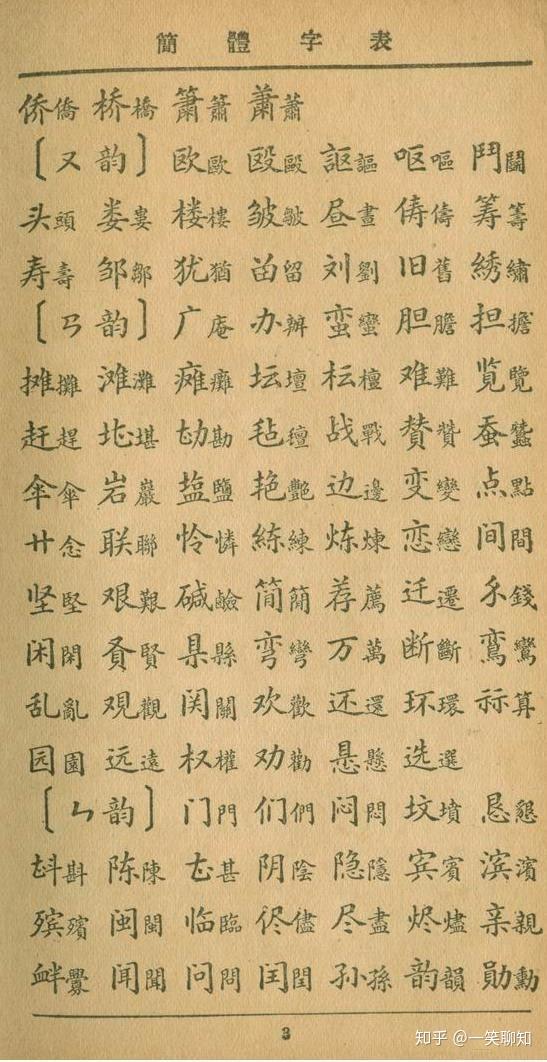 簡體字表
侨僑 桥橋 箫簫 萧蕭
〔ㄡ韵〕 欧歐 殴毆 讴謳 呕嘔 鬥鬭
头頭 娄婁 楼樓 皱皺 昼晝 俦儔 筹籌
寿壽 邹鄒 犹猶 畄留 刘劉 旧舊 綉繡
〔ㄢ韵〕 广庵 办辦 蛮蠻 胆膽 担擔
摊攤 滩灘 瘫癱 坛壇 枟檀 难難 览覽
赶趕 堪 勘 毡氈 战戰 賛贊 蚕蠶
伞傘 岩巖 盐鹽 艳艷 边邊 变變 点點
廿念 联聯 怜憐 練練 炼煉 恋戀 间間
坚堅 艰艱 碱鹼 简簡 荐薦 迁遷 錢
闲閑 賢 県縣 弯彎 万萬 断斷 鸾鸞
乱亂 观觀 関關 欢歡 还還 环環 祘算
园園 远遠 权權 劝勸 悬懸 选選
〔ㄣ韵〕 门門 们們 闷悶 坟墳 恳懇
斟 陈陳 甚 阴陰 隐隱 宾賓 滨濱
殡殯 闽閩 临臨 侭儘 尽盡 烬燼 亲親
衅釁 闻聞 问問 闰閏 孙孫 韵韻 勋勳
3
知乎 @一笑聊知